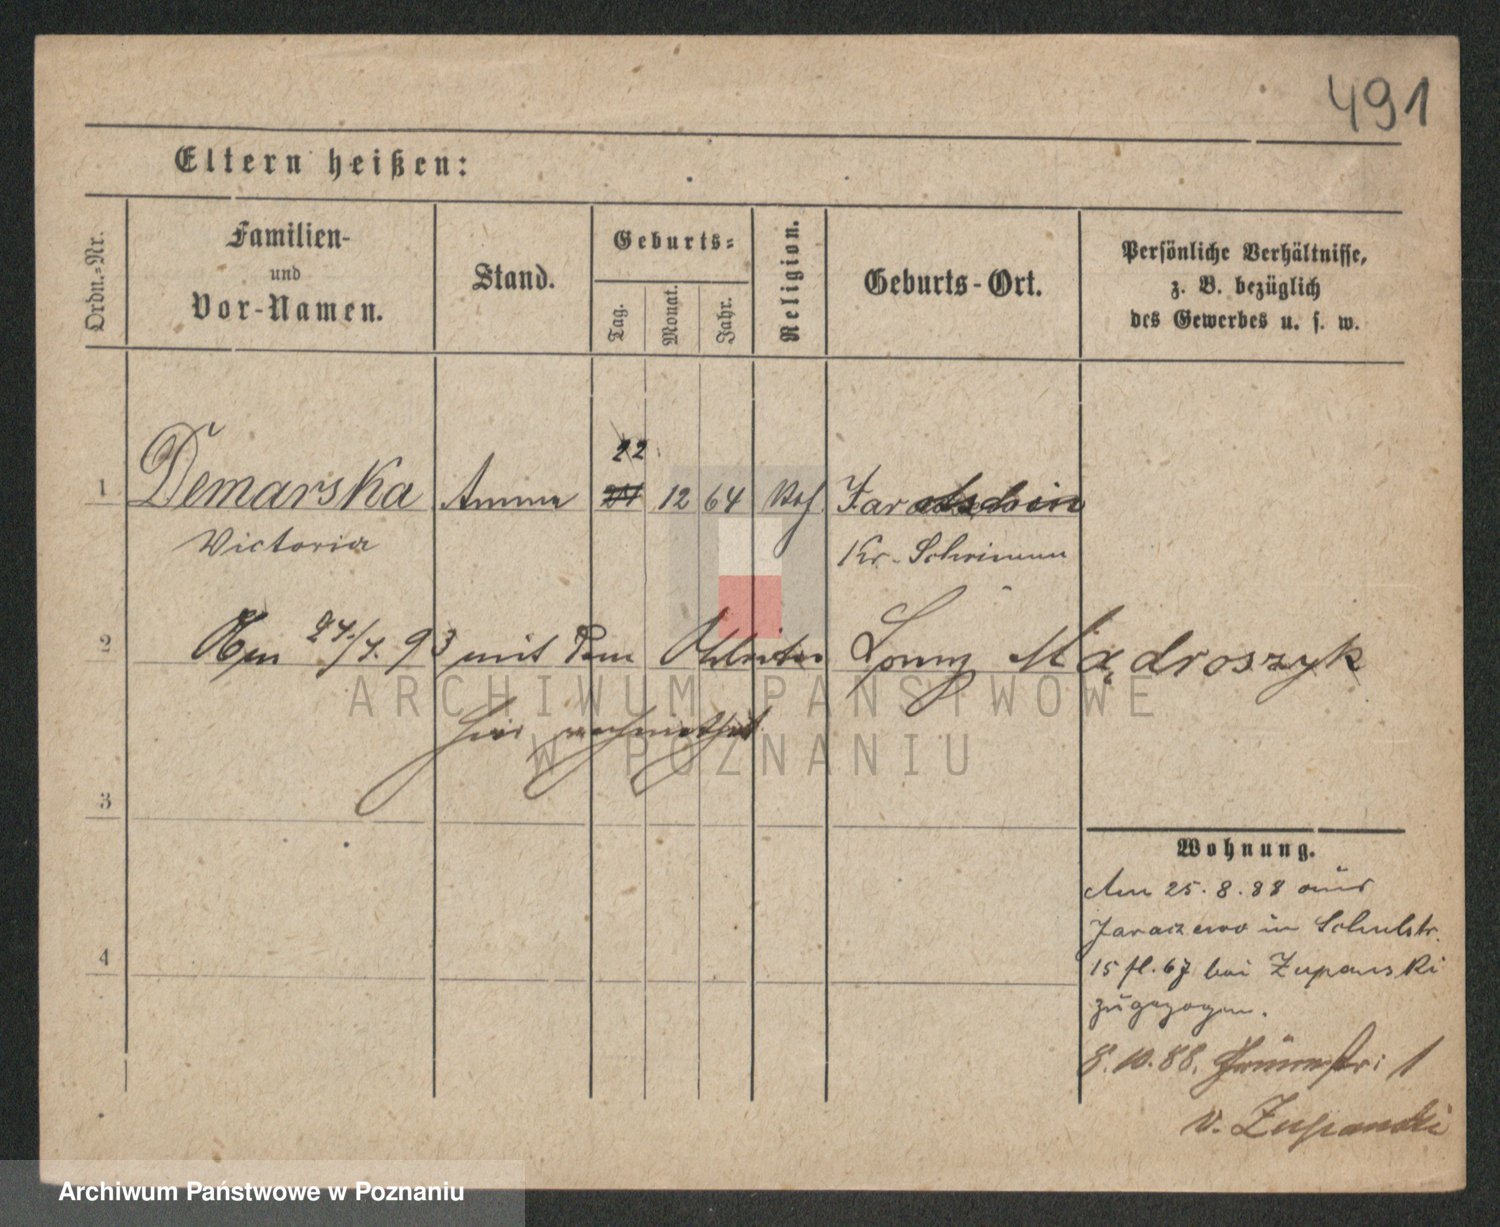 491
Eltern heißen:
Ordn.=Nr.
Familien-
und
Vor-Namen.
Stand.
Geburts=
Tag.
Monat.
Jahr.
Religion.
Geburts-Ort.
Persönliche Verhältnisse,
z. B. bezüglich
des Gewerbes u. s. w.
22
1 Demarska Amme 21 12 64 kath Jaratschin
Victoria Kr. Schrimm
2 Am 24/4. 93 mit dem Arbeiter Mądroszyk
hier
ARCHIWUM PAŃSTWOWE
W POZNANIU
3
4
Wohnung.
Am 25.8.88 aus
Jaraczewo in Schulstr.
15 fl. 67 bei Zupanski
zugezogen.
8.10.88. 1
v. Zupanski
Archiwum Państwowe w Poznaniu